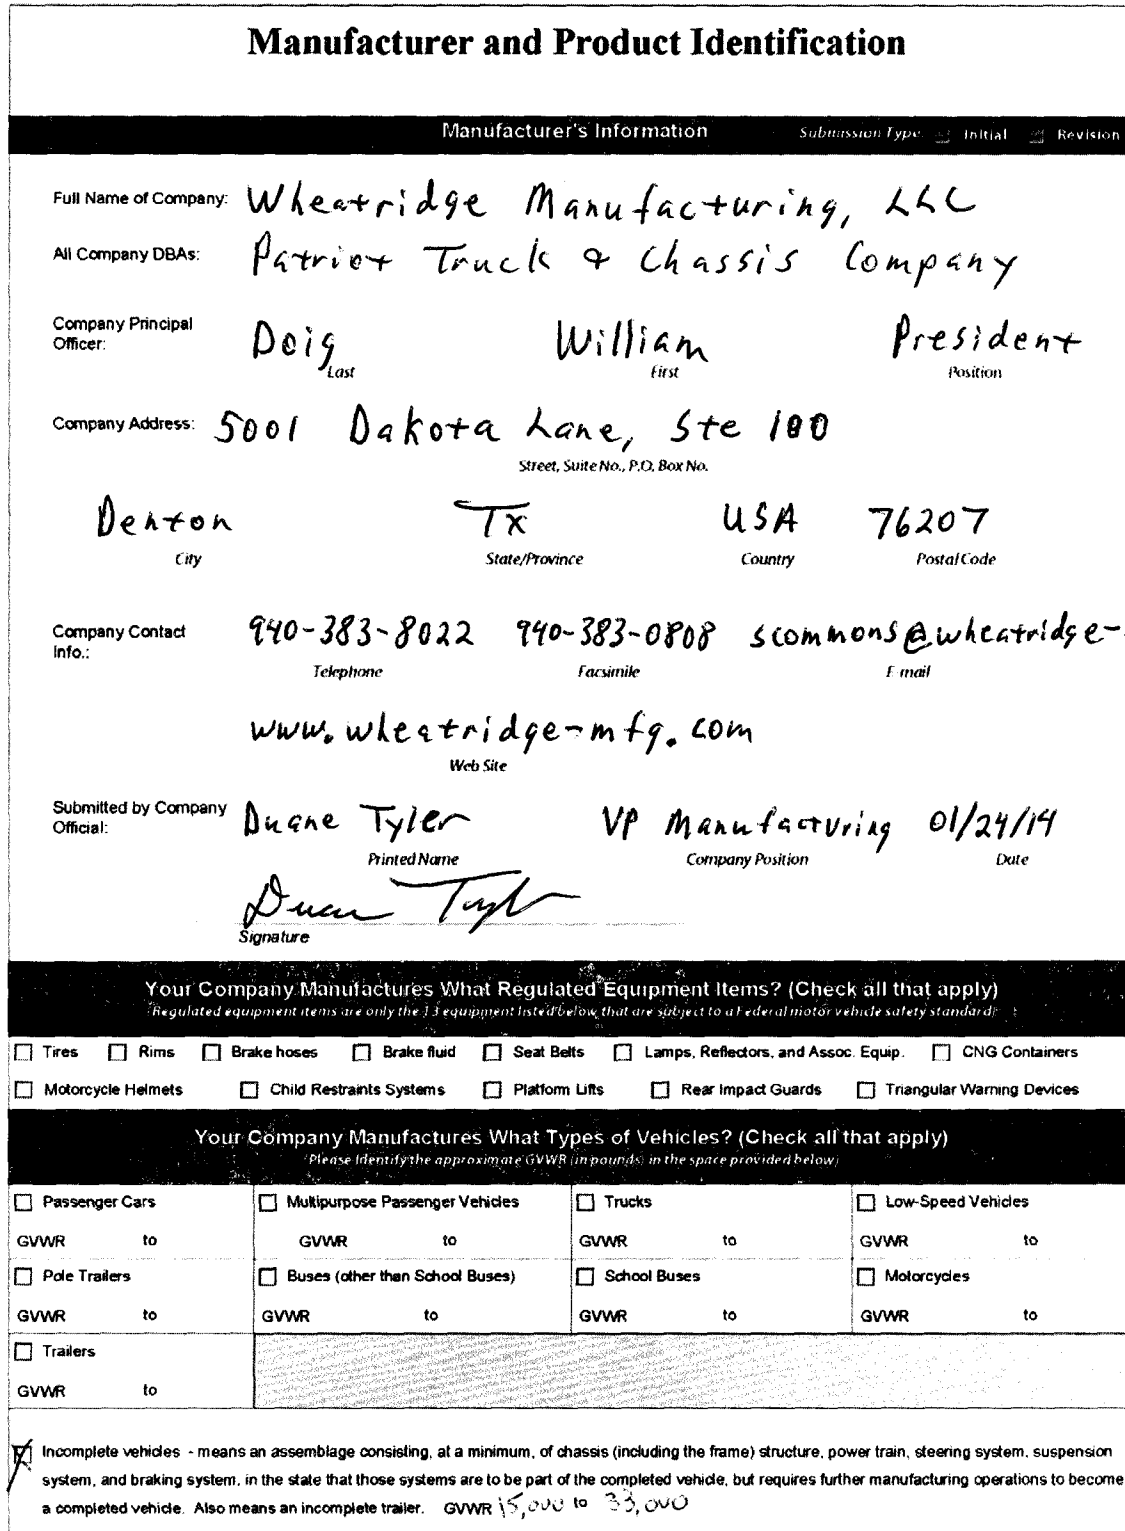 Manufacturer and Product Identification
Manufacturer's Information Submission Type: Initial Revision
Full Name of Company: Wheatridge Manufacturing, LLC
All Company DBAs: Patriot Truck & Chassis Company
Company Principal Officer: Doig William President
Last First Position
Company Address: 5001 Dakota Lane, Ste 100
Street, Suite No., P.O. Box No.
Denton TX USA 76207
City State/Province Country Postal Code
Company Contact Info.: 940-383-8022 940-383-0808 scommons@wheatridge-
Telephone Facsimile E-mail
www.wheatridge-mfg.com
Web Site
Submitted by Company Official: Duane Tyler VP Manufacturing 01/24/14
Printed Name Company Position Date
Duane Tyler
Signature
Your Company Manufactures What Regulated Equipment Items? (Check all that apply)
Regulated equipment items are only the 13 equipment listed below that are subject to a Federal motor vehicle safety standard.
Tires Rims Brake hoses Brake fluid Seat Belts Lamps, Reflectors, and Assoc. Equip. CNG Containers
Motorcycle Helmets Child Restraints Systems Platform Lifts Rear Impact Guards Triangular Warning Devices
Your Company Manufactures What Types of Vehicles? (Check all that apply)
Please Identify the approximate GVWR (in pounds) in the space provided below)
Passenger Cars Multipurpose Passenger Vehicles Trucks Low-Speed Vehicles
GVWR to GVWR to GVWR to GVWR to
Pole Trailers Buses (other than School Buses) School Buses Motorcycles
GVWR to GVWR to GVWR to GVWR to
Trailers
GVWR to
Incomplete vehicles - means an assemblage consisting, at a minimum, of chassis (including the frame) structure, power train, steering system, suspension
system, and braking system, in the state that those systems are to be part of the completed vehicle, but requires further manufacturing operations to become
a completed vehicle. Also means an incomplete trailer. GVWR 15,000 to 33,000